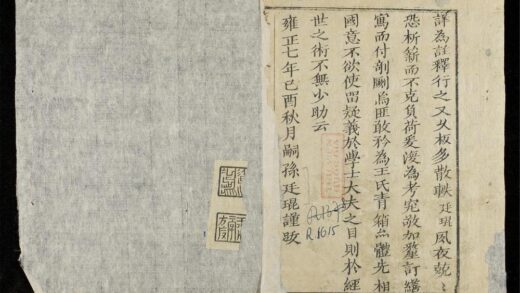 詳為註釋行之又乆板多散軼廷琨夙夜兢〻
恐析薪而不克負荷爰復為考究敬加釐訂繕
寫而付剞劂焉匪敢矜為王氏青箱亦體先相
國意不欲使留疑義於學士大夫之目則於經
世之術不無少助云
雍正七年己酉秋月嗣孫廷琨謹跋
R.1615